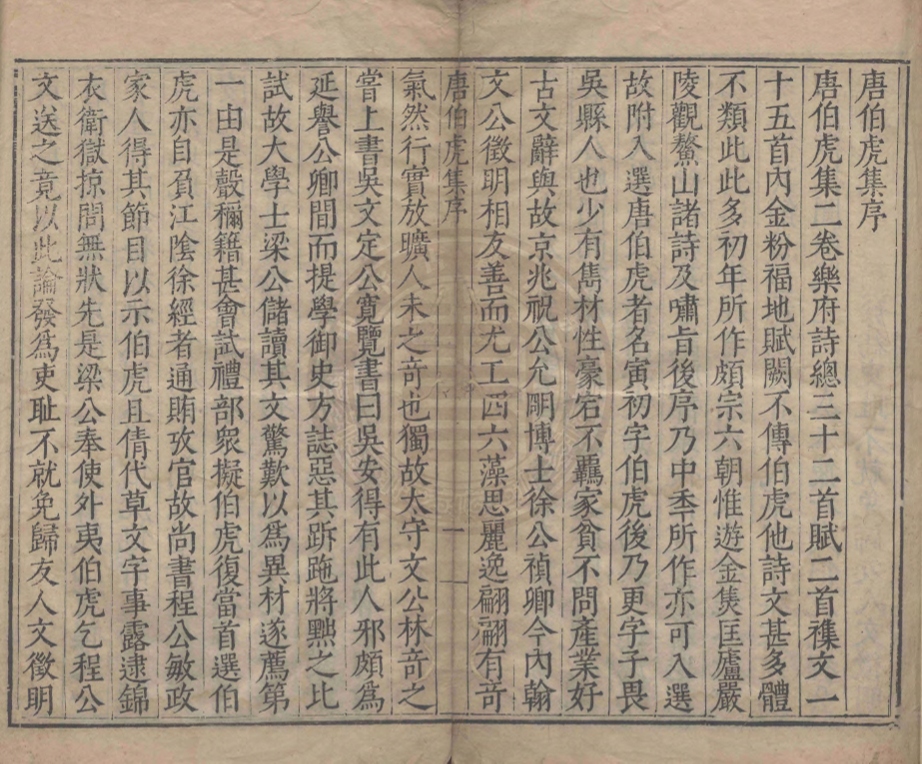 唐伯虎集序
唐伯虎集二卷樂府詩總三十二首賦二首襍文一
十五首內金粉福地賦闕不傳伯虎他詩文甚多體
不類此此多初年所作頗宗六朝惟遊金焦匡廬嚴
陵觀鰲山諸詩及嘯旨後序乃中季所作亦可入選
故附入選唐伯虎者名寅初字伯虎後乃更字子畏
吳縣人也少有雋材性豪宕不羈家貧不問產業好
古文辭與故京兆祝公允明博士徐公禎卿今內翰
文公徵明相友善而尤工四六藻思麗逸翩翩有奇
唐伯虎集序
一
氣然行實放曠人未之奇也獨故太守文公林奇之
嘗上書吳文定公寬覽書曰吳安得有此人邪頗為
延譽公卿間而提學御史方誌惡其跅跑將黜之比
試故大學士梁公儲讀其文驚歎以為異材遂薦第
一由是聲稱籍甚會試禮部衆擬伯虎復當首選伯
虎亦自負江陰徐經者通賄攷官故尚書程公敏政
家人得其節目以示伯虎且倩代草文字事露逮錦
衣衛獄掠問無狀先是梁公奉使外夷伯虎乞程公
文送之竟以此論發為吏恥不就免歸友人文徵明